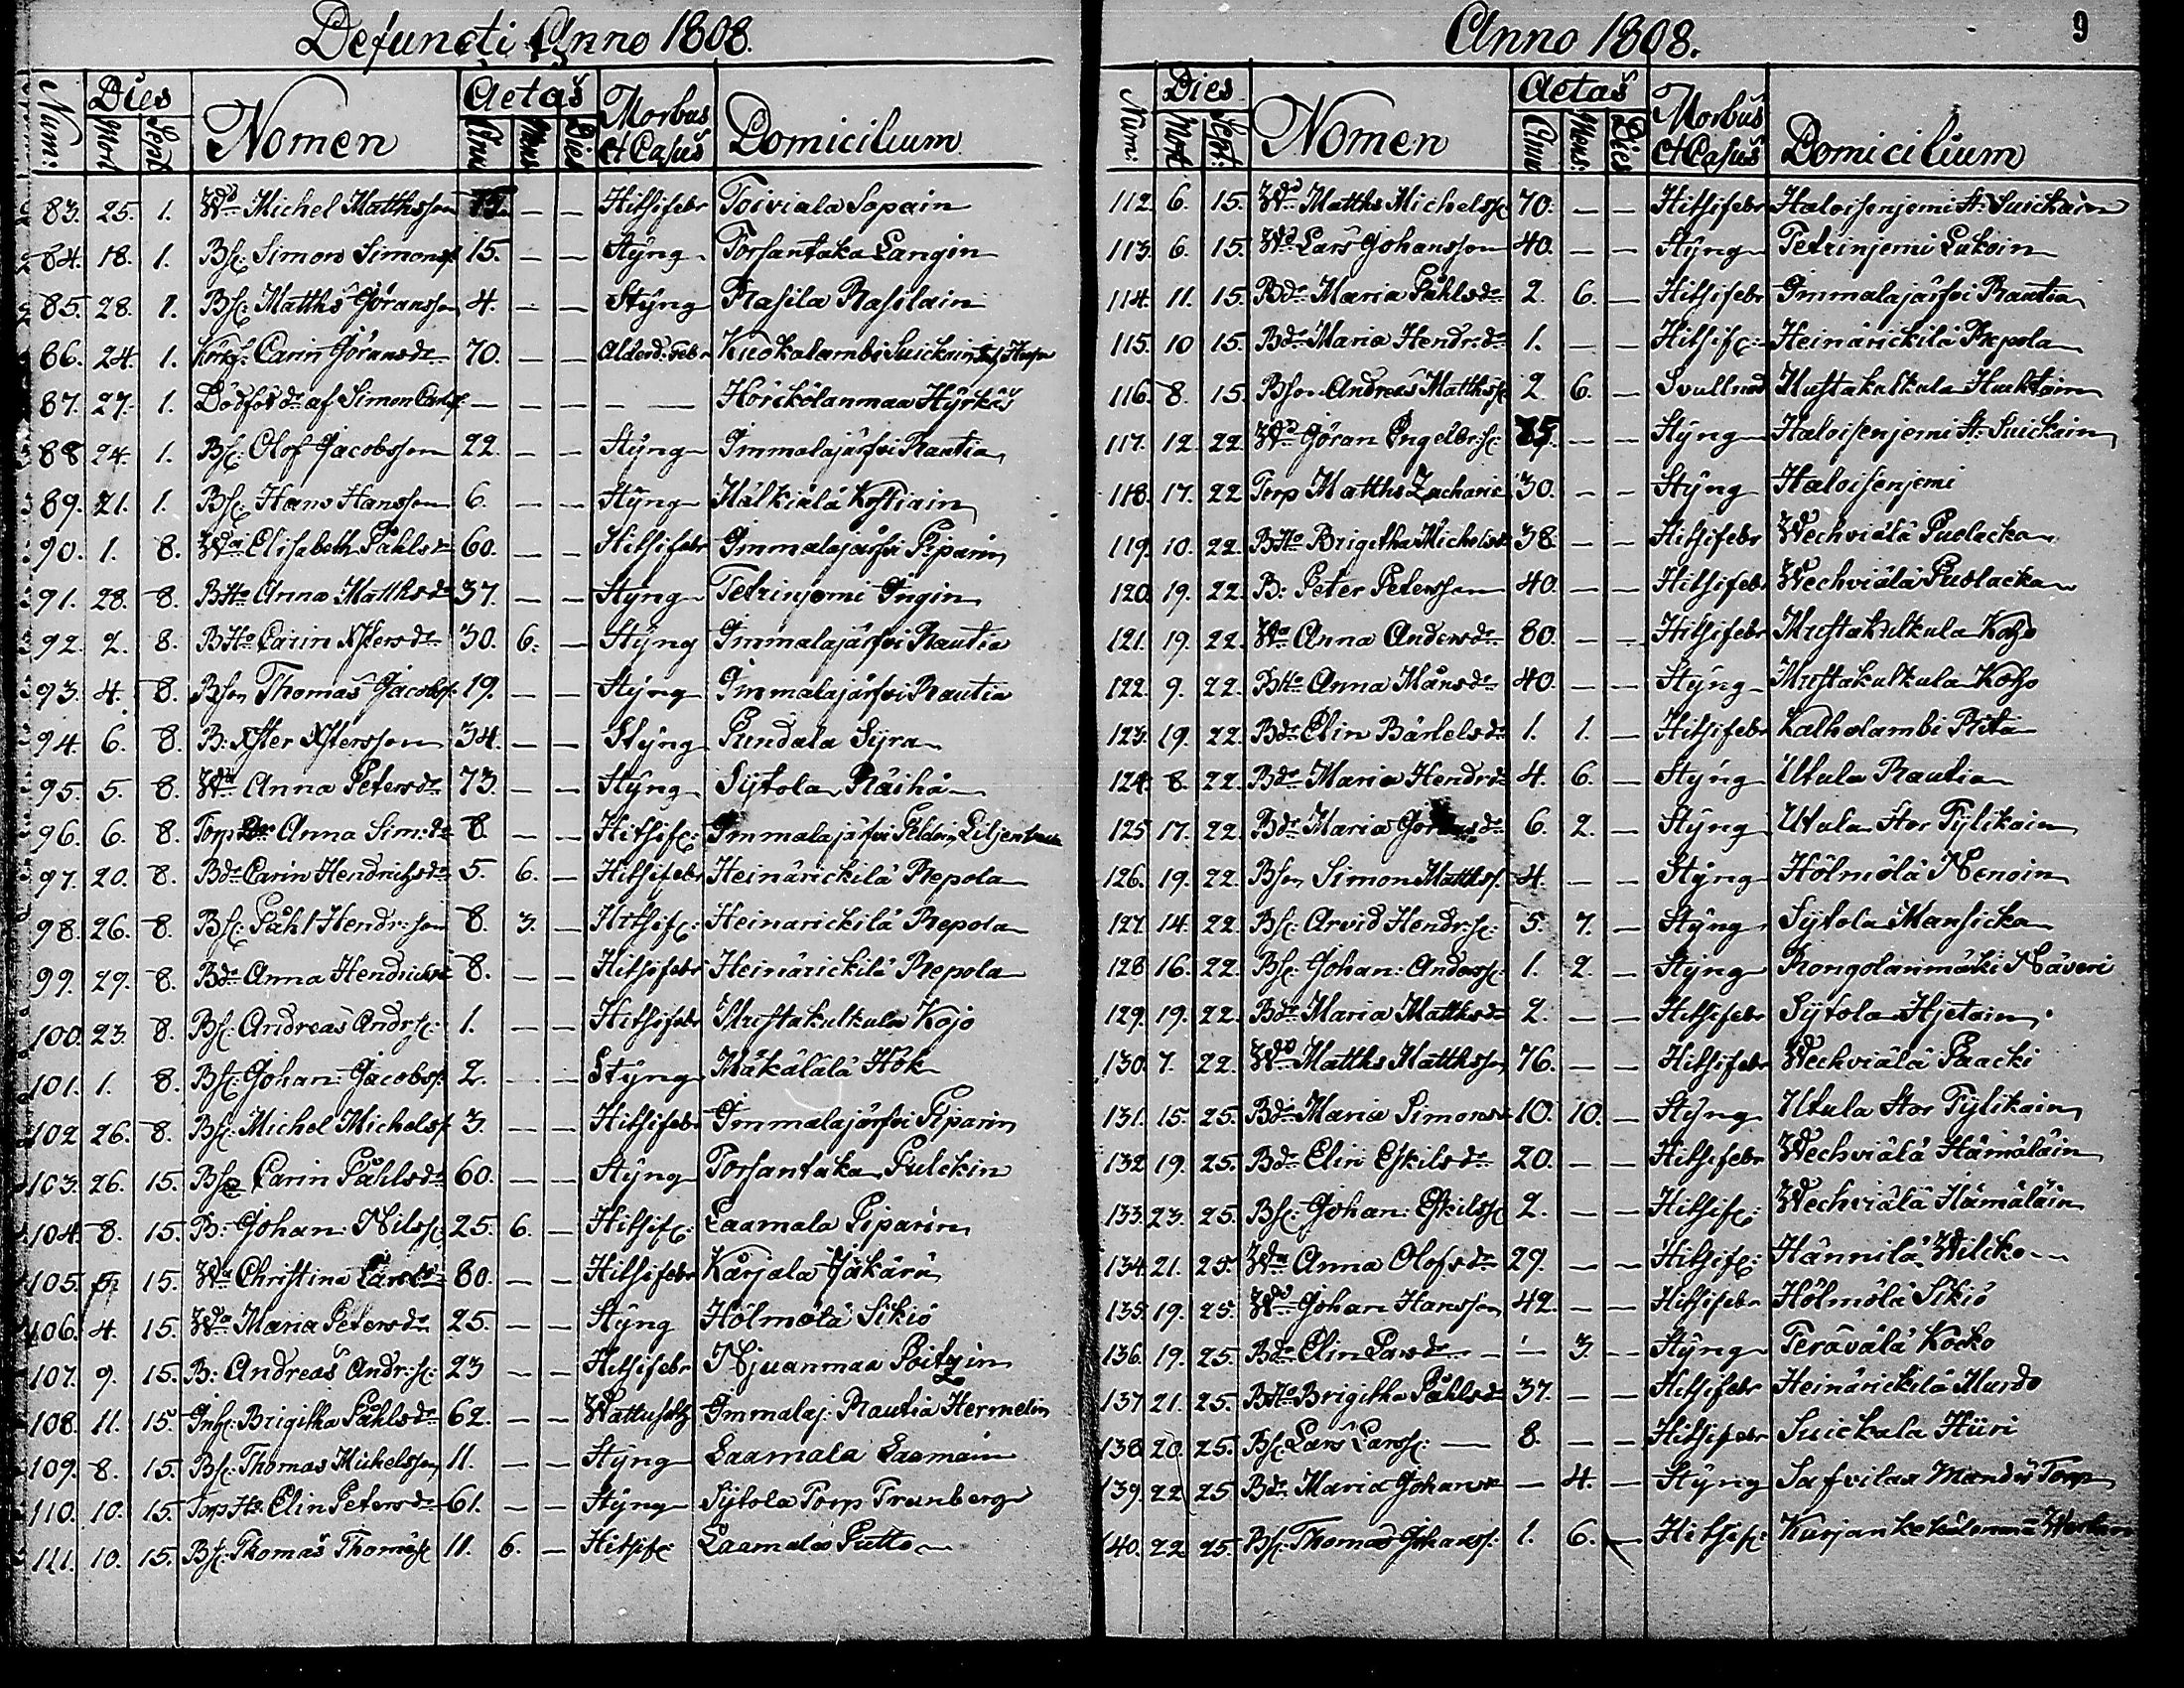 Defuncti Anno 1808.
Num: Dies Nomen Aetas Morbus et Casus Domicilium
Mort Sept Anni Mens Dies
83. 25. 1. Wdr Michel Matthsson — — Hitsifebr Toiviala Sopain
84. 18. 1. Bsr: Simon Simonss 15. — — Styng Torsantaka Langin
85. 28. 1. Bsr: Matths Göransson 4. — — Styng Rasila Rasilain
86. 24. 1. Carin Göransdr 70. — — Ålderd: Febr Kuokalambi Suickain
87. 27. 1. Dödföd dr af Simon — — — — — Höricölanmaa Hyrkäs
88 24. 1. Bsr: Olof Jacobsson 22. — — Styng Immalajärfvi Rautia
89. 21. 1. Bsr: Hans Hansson 6. — — Styng Hälkiälä Kostiain
90. 1. 8. Wda Elisabeth Påhlsdr 60. — — Hitsifebr Immalajärfvi Piparin
91. 28. 8. BHo Anna Matthsdr 37. — — Styng Tetrinjemi Ingin
92. 2. 8. BHo Carin Xstersdr 30. 6. — Styng Immalajärfvi Rautia
93. 4. 8. Bson Thomas Jacobss: 19. — — Styng Immalajärfvi Rautia
94. 6. 8. B: Xster Xstersson 34. — — Styng Pundala Syra
95. 5. 8. Wda Anna Petersdr 73. — — Styng Sytola Räihä
96. 6. 8. Torp Dr: Anna Sim:dr 8 — — Hitsifr: Immalajäfvi Liljenbau
97. 20. 8. Bdr Carin Hendrichsdr 5. 6. — Hitsifebr Heinärickilä Repola
98. 26. 8. Bsr: Påhl Hendr:son 8. 3. — Hitsifr: Heinarickilä Repola
99. 29. 8. Bdr Anna Hendricsdr 8. — — Hitsifebr Heinärickilä Repola
100. 23. 8. Bsr: Andreas Andr:sr: 1. — — Hitsifebr Mustakulkula Kojo
101. 1. 8. Bsr: Johan: Jacobss: 2. — — Styng Mäkälälä Hök
102 26. 8. Bsr: Michel Michelss 3. — — Hitsifebr Immalajärfvi Piparin
103. 26. 15. Carin Påhlsdr 60. — — Styng Torsantaka Pulckin
104. 8. 15. B: Johan: Nilssr: 25. 6. — Hitsifr: Laamala Piparin
105. 15. Wda Christina Larsdr 80. — — Hitsifebr Karjala Jäkärä
106. 4. 15. Wda Maria Petersdr 25. — — Styng Hölmölä Sikiö
107. 9. 15. B: Andreas Andr:sr: 23 — — Hitsifebr Njuanmaa Poitzin
108. 11. 15. Inhr: Brigitha Påhlsdr 62. — — Wattusotg Immalaj: Rautia Hermelin
109. 8. 15. Bsr: Thomas Michelsson 11. — — Styng Laamala Laamain
110. 10. 15. Torp Ho: Elin Petersdr 61. — — Styng Sytola Torp Trunberg
111. 10. 15. Bsr: Thomas Thomasr 11. 6. — Hitsifr: Laamala Putto
Anno 1808. 9
Num: Dies Nomen Aetas Morbus et Casus Domicilium
Mort. Sept: Anni Mens: Dies
112. 6. 15. Wdr Matths Michelssr 70. — — Hitsifebr Haloisenjemi St: Suickain
113. 6. 15. Wdr Lars Johansson 40. — — Styng Tetrinjemi Lukoin
114. 11. 15. Bdr Maria Påhlsdr 2. 6. — Hitsifebr Immalajärfvi Rautia
115. 10 15. Bdr Maria Hendr:dr 1. — — Hitsifr: Heinärickilä Repola
116. 8. 15. Bson Andreas Matthssr 2. 6. — Svullnad Mustakulkula Hucktain
117. 12. 22. Wdr Göran Ingelbr:sr: 85. — — Styng Haloisenjemi St: Suickain
118. 17. 22 Torp Matths Zacharie 30. — — Styng Haloisenjemi
119. 10. 22. BHo Brigitha Michelsdr 38 — — Hitsifebr Wechviälä Puolacka
120. 19. 22. B: Peter Petersson 40. — — Hitsifebr Wechviälä Puolacka
121. 19. 22. Wa Anna Andersdr 80. — — Hitsifebr Mustakulkula Kojo
122. 9. 22. BHo Anna Månsdr 40. — — Styng Mustakulkula Kojo
123. 19. 22. Bdr Elin Bärtelsdr 1. 1. — Hitsifebr Kalholambi Rita
124. 8. 22. Bdr Maria Hendrdr 4. 6. — Styng Utula Rautia
125 17. 22. Bdr Maria Göransdr 6. 2. — Styng Utula Stor Pylikain
126. 19. 22. Bson Simon Matthss: 4. — — Styng Hölmölä Nenoin
127. 14. 22. Bsr: Arvid Hendr:sr: 5. 7. — Styng Sytola Mansicka
128 16. 22. Bsr: Johan: Anderssr: 1. 2. — Styng Rongolanmäki Näveri
129. 19. 22. Bdr Maria Matthsdr 2. — — Hitsifebr Sytola Hjetain
130. 7. 22. Wdr Matths Matthsson 76. — — Hitsifebr Wechviälä Paacki
131. 15. 25. Bdr Maria Simonsdr 10. 10. — Styng Utula Stor Pylikain
132 19. 25. Bdr Elin Eskilsdr 20. — — Hitsifebr Wechviälä Hämäläin
133. 23. 25. Bsr: Johan: Eskilssr 2. — — Hitsifr: Wechviälä Hämäläin
134. 21. 25. Wda Anna Olofsdr 29. — — Hitsifr: Hännilä Wilcko
135. 19. 25. Wdr Johan Hansson 42. — — Hitsifebr Hölmölä Sikiö
136. 19. 25. Bdr Elin Larsdr — — 3. — Styng Terävälä Kocko
137 21. 25. BHo Brigitha Påhlsdr 37. — — Hitsifebr Heinärickilä Murdo
138. 20. 25. Bsr: Lars Larssr: — 8. — — Hitsifebr Suickala Hiiri
139. 22 25 Bdr Maria Johansdr — 4. — Styng Safvilax Mandus Torp
140. 22 25. Bsr: Thomas Johanss: 1. 6. — Hitsifr: